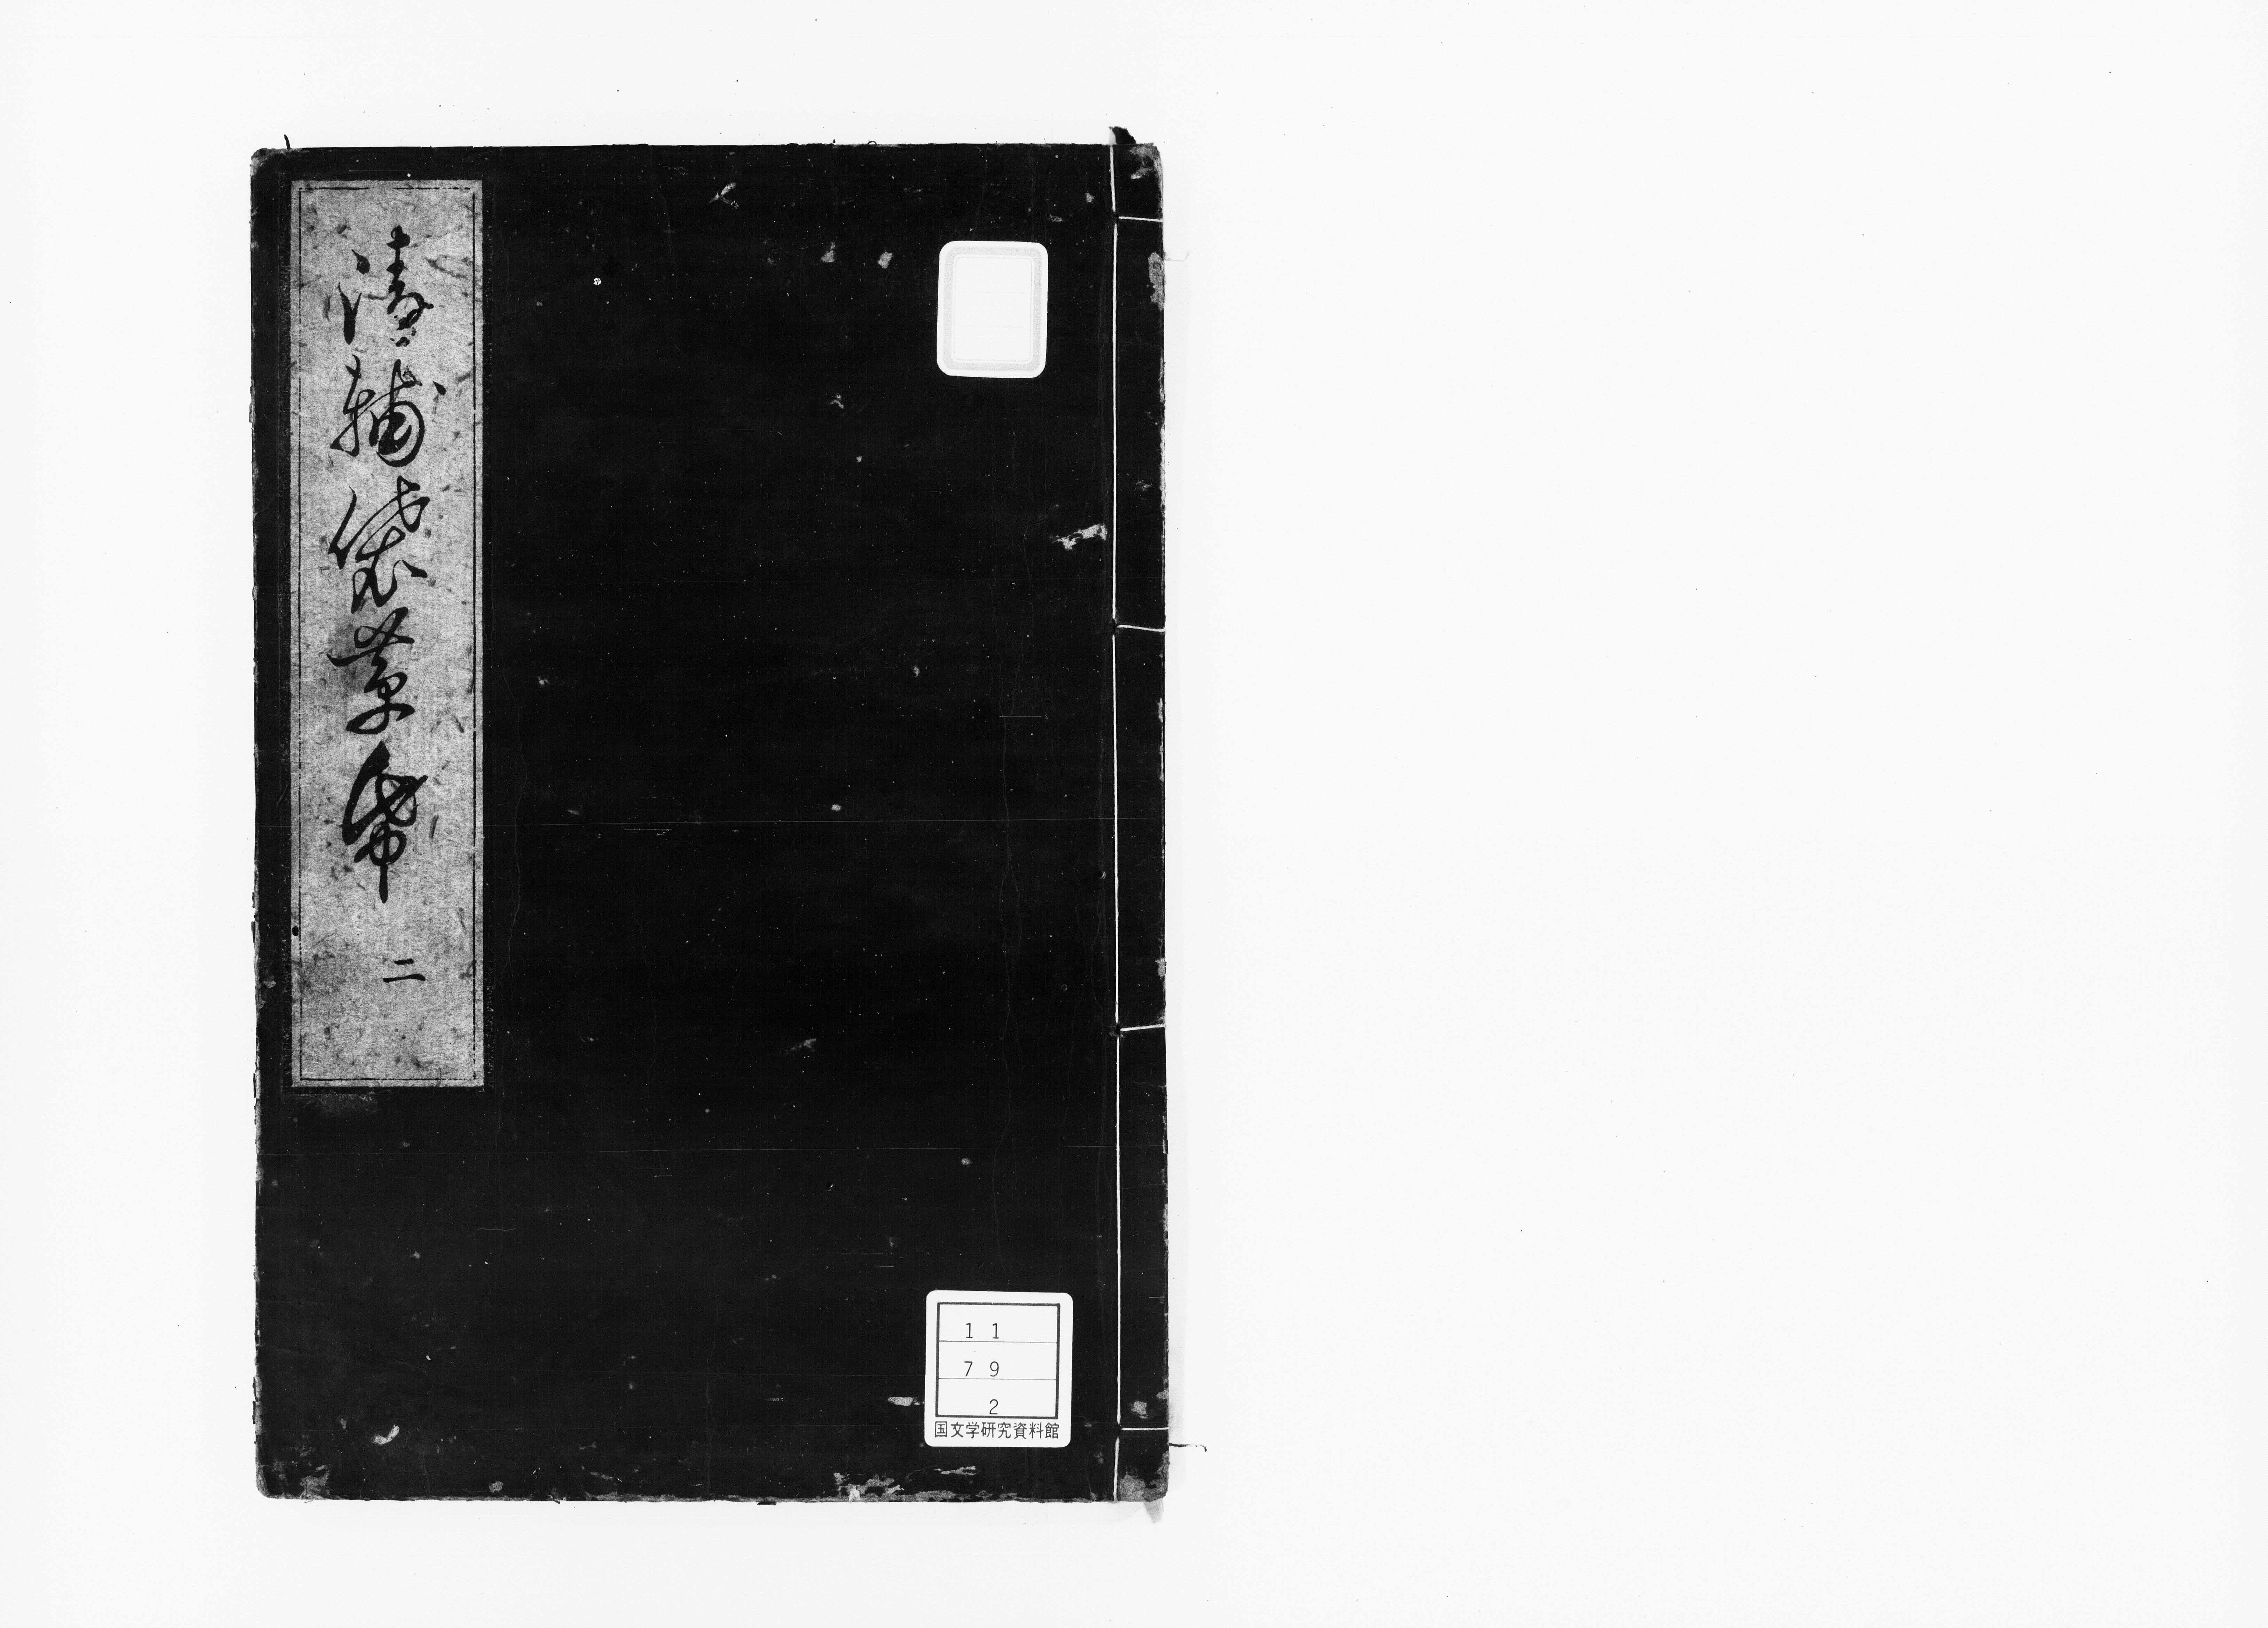 清輔袋草帋 二
11
79
2
国文学研究資料館